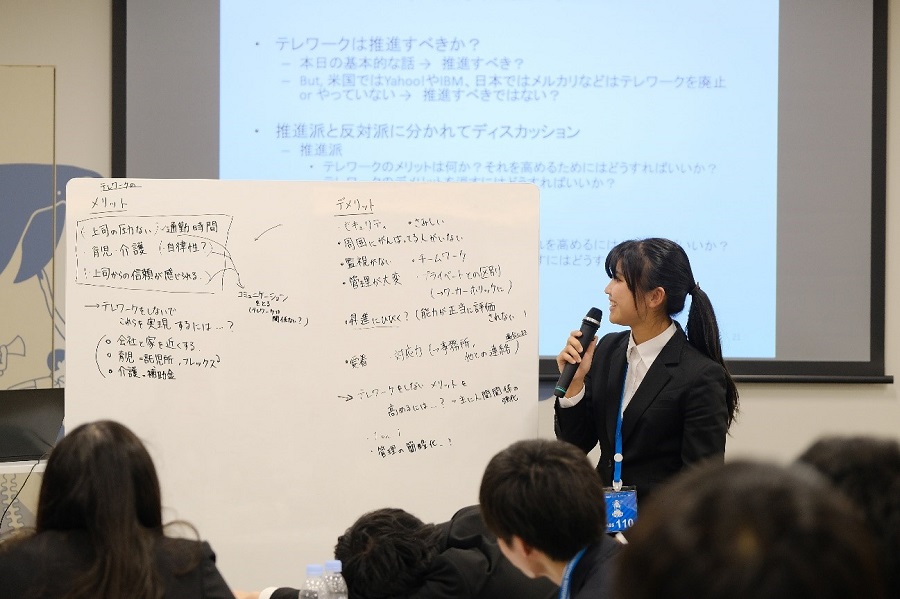 • テレワークは推進すべきか?
– 本日の基本的な話 → 推進すべき?
– But, 米国ではYahoo!やIBM、日本ではメルカリなどはテレワークを廃止
or やっていない → 推進すべきではない?
• 推進派と反対派に分かれてディスカッション
– 推進派
• テレワークのメリットは何か?それを高めるためにはどうすればいいか?
テレワークのデメリットを消すにはどうすればいいか?
れを高めるには
いいか?
すにはどうす
テレワークの
メリット
上司の圧力ない
通勤時間
育児・介護
自律性?
上司からの信頼が感じられる
コミュニケーション
をとる
(テレワークは
関係ない?)
→テレワークをしないで
これらを実現するには…?
会社と家を近くする
育児→託児所、フレックス
介護→補助金
デメリット
・セキュリティ
・さみしい
・周囲にがんばってる人がいない
・監視がない
・チームワーク
・管理が大変
プライベートとの区別
(→ワーカーホリックに)
・昇進にひびく? (能力が正当に評価
されない)
対応力(→事務所、
他との連絡
→テレワークをしないメリットを
高めるには…? →主に人間関係の
強化
・管理の簡略化…?
110